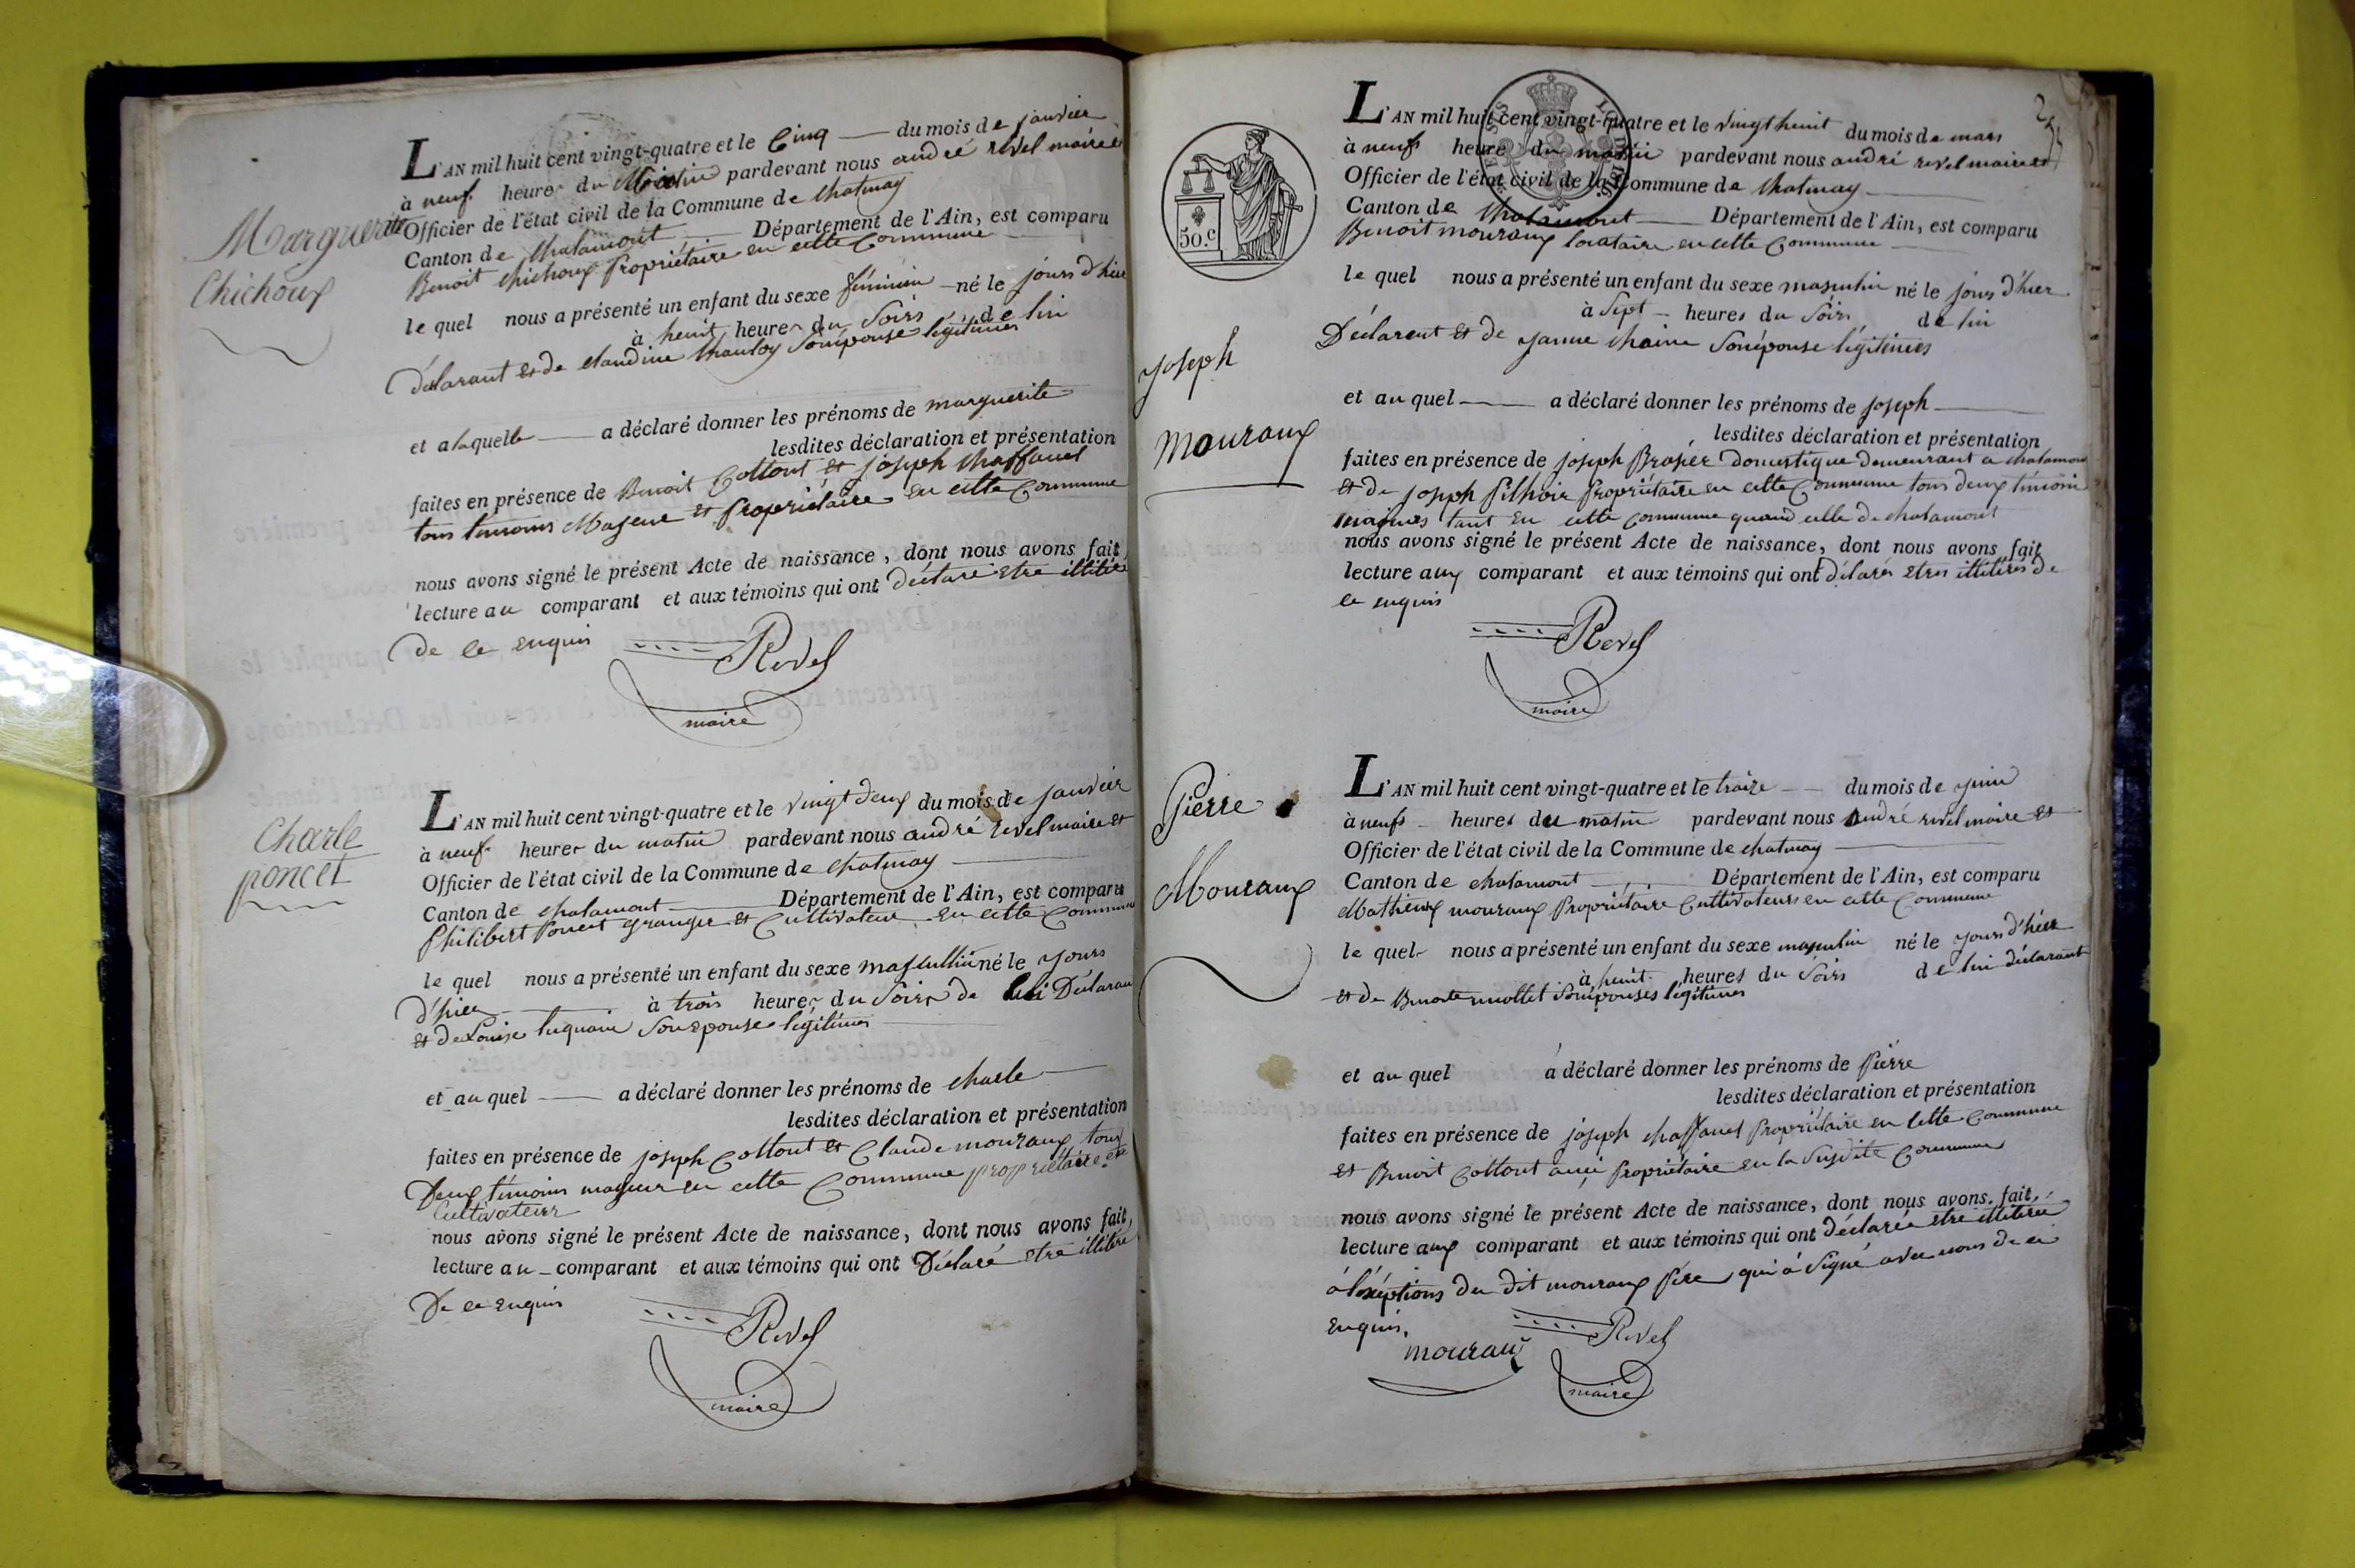 Marguerite
Chichoux
L'AN mil huit cent vingt-quatre et le Cinq du mois de janvier
à neuf heures du Matin pardevant nous andré revel maire et
Officier de l'état civil de la Commune de Chatenay
Canton de Chalamont Département de l'Ain, est comparu
Benoit Chichoux Propriétaire en cette Commune
le quel nous a présenté un enfant du sexe féminin né le jours d'hier
à heuit heures du Soirs de lui
Déclarant et de Claudine Son épouse légitimes
et a laquelle a déclaré donner les prénoms de marguerite
lesdites déclaration et présentation
faites en présence de Benoit Cottout et joseph Chaffanel
tous temoins Majeur et Propriétaire en cette Commune
nous avons signé le présent Acte de naissance, dont nous avons fait
lecture au comparant et aux témoins qui ont déclaré etre illitéré
De ce enquis
Revel
maire
Charle
poncet
L'AN mil huit cent vingt-quatre et le vingt deux du mois de janvier
à neuf heures du matin pardevant nous andré revel maire et
Officier de l'état civil de la Commune de chatenay
Canton de chalamont Département de l'Ain, est comparu
Philibert Poncet granger et Cultivateur en cette Commune
le quel nous a présenté un enfant du sexe masculin né le jours
d'hier à trois heures du Soirs de lui Déclarant
et de Louise Son epouse légitimes
et au quel a déclaré donner les prénoms de charle
lesdites déclaration et présentation
faites en présence de joseph Cottout et Claude mouraux tous
Deux témoins majeur en cette Commune proprietaire et
Cultivateur
nous avons signé le présent Acte de naissance, dont nous avons fait
lecture au comparant et aux témoins qui ont Déclaré etre illitéré
De ce enquis
Revel
maire
50. c
joseph
mouraux
L'AN mil huit cent vingt-quatre et le vingt heuit du mois de mars
à neufs heure du matin pardevant nous andré revel maire et
Officier de l'état civil de la Commune de Chatenay
Canton de Chalamont Département de l'Ain, est comparu
Benoit mouraux locataire en cette Commune
le quel nous a présenté un enfant du sexe masculin né le jours d'hier
à Sept heures du Soirs de lui
Déclarent et de janne Chaine Son épouse légitimes
et au quel a déclaré donner les prénoms de joseph
lesdites déclaration et présentation
faites en présence de joseph Brasier Domestique demeurant a chalamont
et de joseph Propriétaire en cette Commune tous deux témoin
majeurs tant en cette commune quand celle de chalamont
nous avons signé le présent Acte de naissance, dont nous avons fait
lecture aux comparant et aux témoins qui ont délarés etres illitérés de
ce enquis
Revel
maire
Pierre
Mouraux
L'AN mil huit cent vingt-quatre et le traize du mois de juin
à neufs heures du matin pardevant nous André revel maire et
Officier de l'état civil de la Commune de chatenay
Canton de chalamont Département de l'Ain, est comparu
Mathieux mouraux Propriétaire Cultivateurs en cette Commune
le quel nous a présenté un enfant du sexe masculin né le jours d'hier
à heuit heures du Soirs de lui déclarant
et de Benoite mollet Son épouses légitimes
et au quel a déclaré donner les prénoms de Pierre
lesdites déclaration et présentation
faites en présence de joseph chaffanel Propriétaire en cette Commune
et Benoit Cottout auçi Propriétaire en la Susdite Commune
nous avons signé le présent Acte de naissance, dont nous avons fait
lecture aux comparant et aux témoins qui ont déclarée etre illitérée
à léxéptions du dit mouraux Père qui à Signé avec nous de ce
enquis.
mouraux Revel
maire